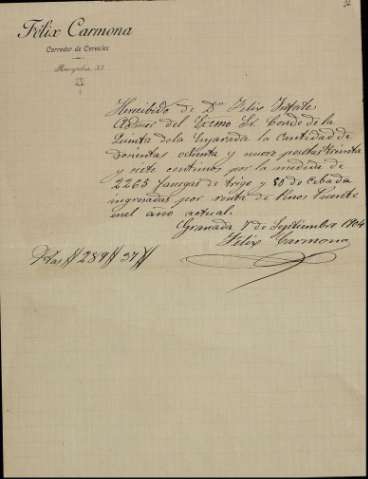 Félix Carmona
Corredor de Cereales
He recibido de Dn Felix Infante
Admor del Excmo Sr Conde de la
Quinta de la Enjarada la cantidad de
doscientas ochenta y nueve pesetas treinta
y siete centimos por la medida de
2265 fanegas de trigo y 50 de cebada
ingresadas por renta de Pinos Puente
en el año actual.
Granada 7 de Septiembre 1904
Félix Carmona
Ptas // 289 // 37 //